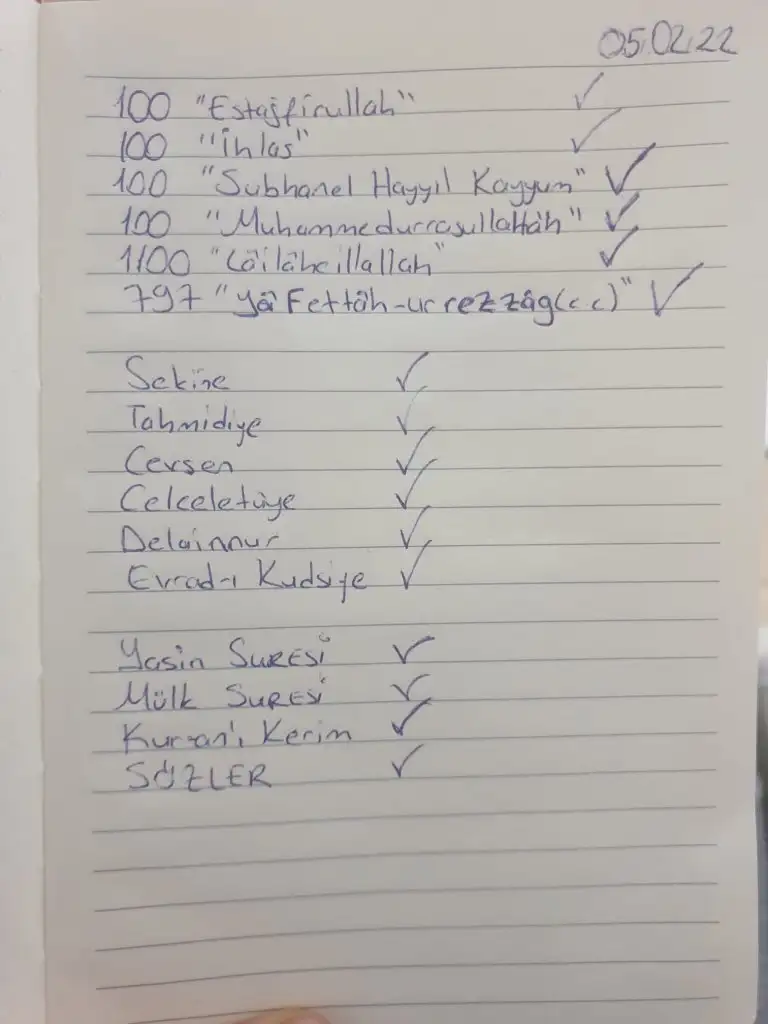 05.02.22
100 "Estağfirullah" ✓
100 "İhlas" ✓
100 "Subhanel Hayyıl Kayyum" ✓
100 "Muhammedurrasullallah" ✓
1100 "Lâilâheillallah" ✓
797 "Yâ Fettâh-ur rezzâg(c c)" ✓
Sekine ✓
Tahmidiye ✓
Cevsen ✓
Celceletiye ✓
Delainnur ✓
Evrad-ı Kudsiye ✓
Yasin SURESİ ✓
Mülk SURESİ ✓
Kur-an'ı Kerim ✓
SÖZLER ✓